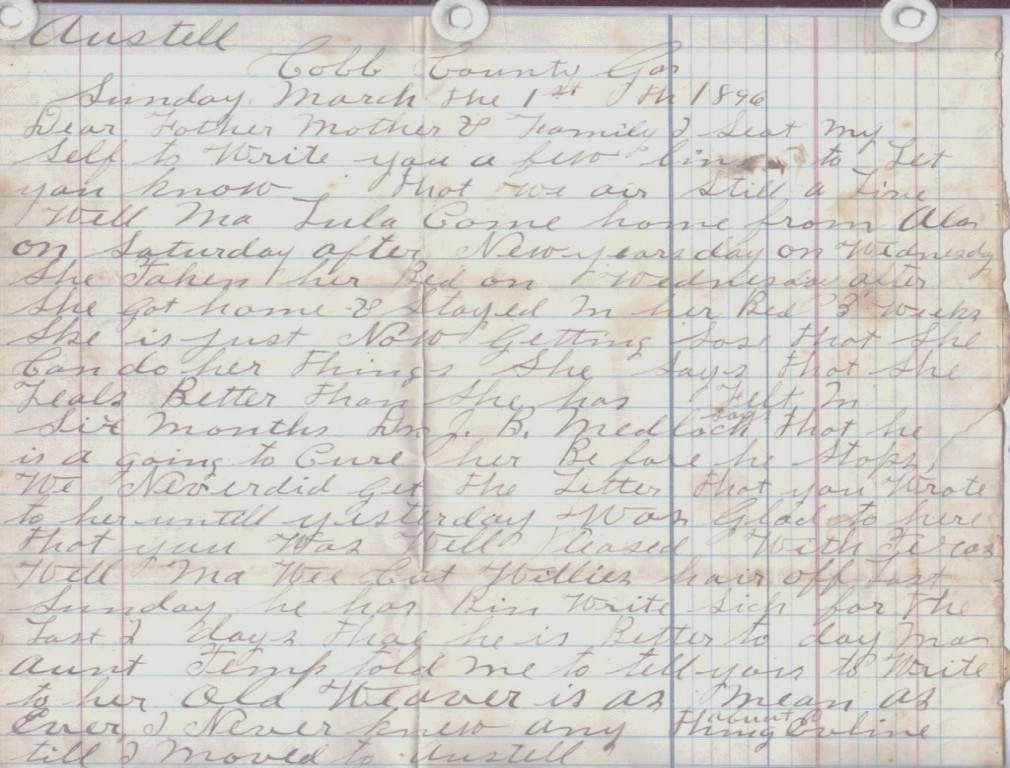 Austell
Cobb County Ga
Sunday March the 1st th 1896
Dear Father Mother & Family I Seat my
Self to Write you a few lines to Let
you know that we air still a Live
Well Ma Lula Come home from Ala
on Saturday after New years day on Wednesday
She Taken her Bed on Wednesday after
She got home & Stayed In her Bed 3 weeks
She is just Now Getting Sose that She
Can do her things She Says that She
Feals Better than She has Felt In
Six Months Dr J. B. Medlock says that he
is a going to Cure her Be fore he Stops
We Never did get the Letter that you Wrote
to her untill yisterday Was Glad to here
that you Was Well Pleased With Texas
Well Ma Wee Cut Willies hair off Last
Sunday he has Bin Write Sick for the
Last 2 days thoe he is Better to day Ma
aunt Temp told me to tell you to Write
to her Old Weaver is as mean as
Ever I Never knew any thing about Evline
till I Moved to Austell